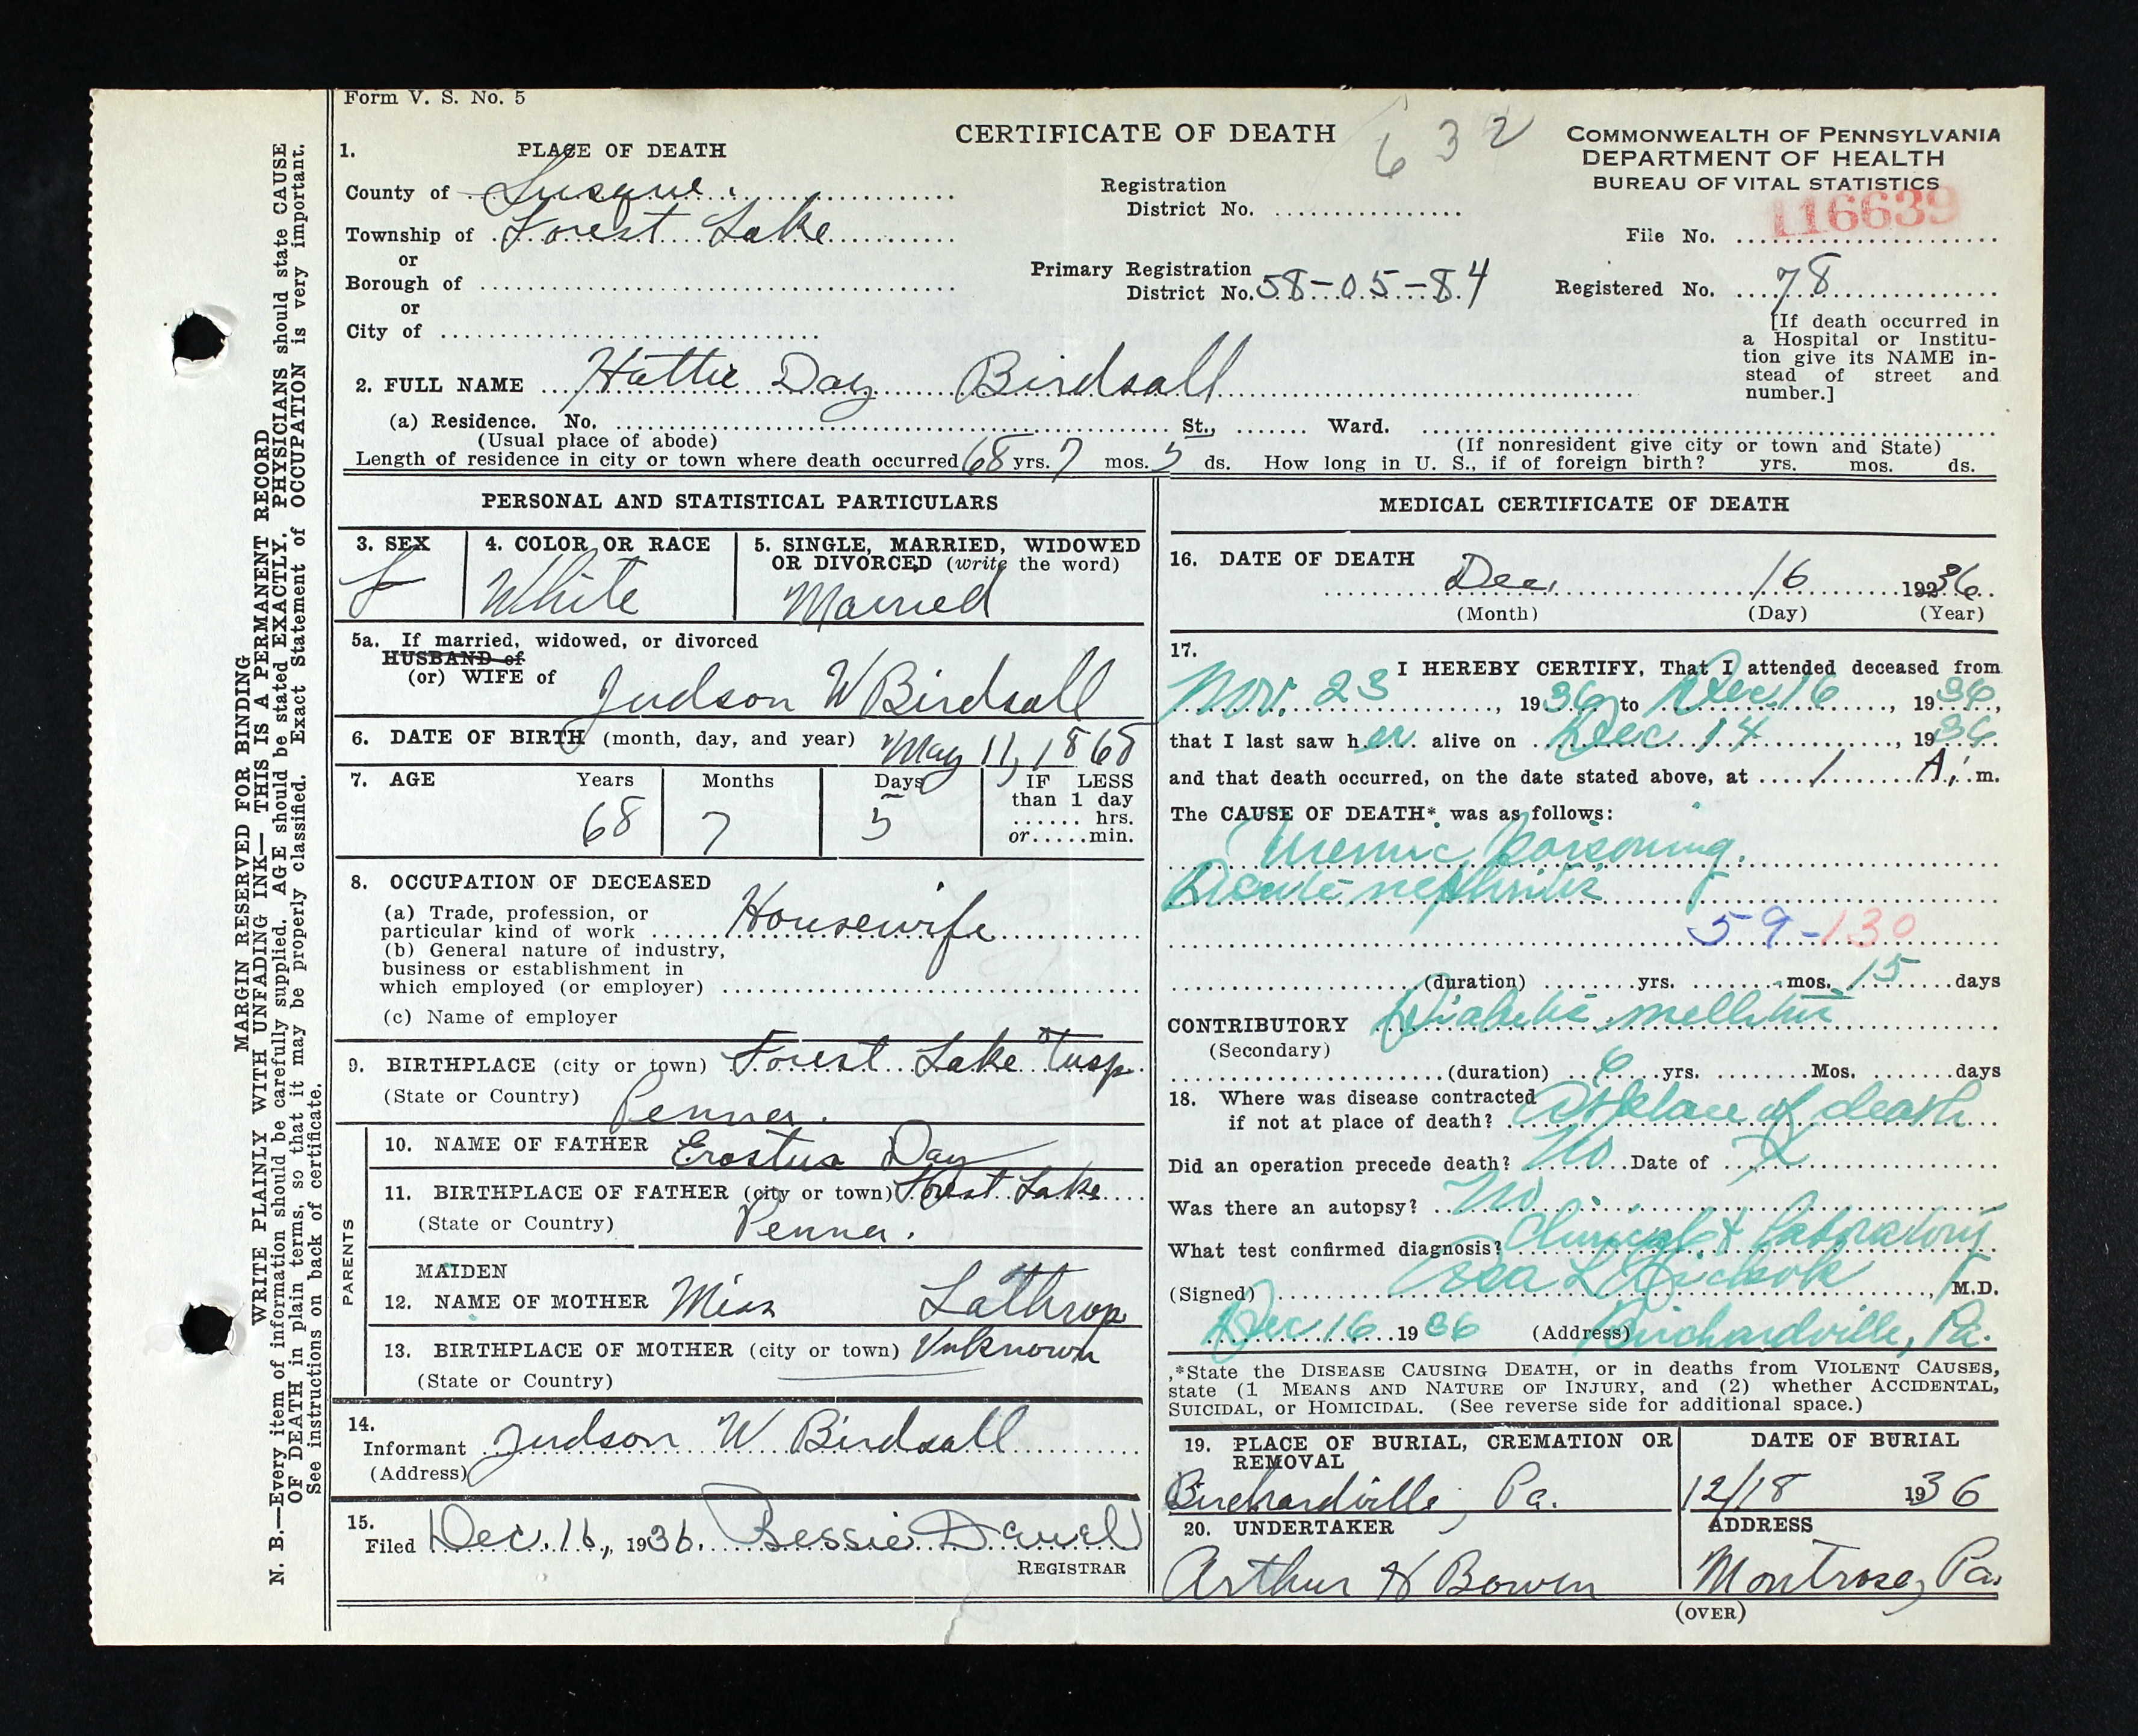 Form V. S. No. 5
CERTIFICATE OF DEATH
632
COMMONWEALTH OF PENNSYLVANIA
DEPARTMENT OF HEALTH
BUREAU OF VITAL STATISTICS
1. PLACE OF DEATH
County of Susque.
Township of Forest Lake
or
Borough of
or
City of
Registration
District No.
Primary Registration
District No. 58-05-84
116639
File No.
Registered No. 78
[If death occurred in
a Hospital or Institu-
tion give its NAME in-
stead of street and
number.]
2. FULL NAME Hattie Day Birdsall
(a) Residence. No. St., Ward.
(Usual place of abode) (If nonresident give city or town and State)
Length of residence in city or town where death occurred 68 yrs. 7 mos. 5 ds. How long in U. S., if of foreign birth? yrs. mos. ds.
PERSONAL AND STATISTICAL PARTICULARS
3. SEX
f
4. COLOR OR RACE
White
5. SINGLE, MARRIED, WIDOWED
OR DIVORCED (write the word)
Married
5a. If married, widowed, or divorced
HUSBAND of
(or) WIFE of Judson W Birdsall
6. DATE OF BIRTH (month, day, and year) May 11, 1868
7. AGE Years Months Days IF LESS
than 1 day
hrs.
or min.
68 7 5
8. OCCUPATION OF DECEASED
(a) Trade, profession, or
particular kind of work Housewife
(b) General nature of industry,
business or establishment in
which employed (or employer)
(c) Name of employer
9. BIRTHPLACE (city or town) Forest Lake Twsp.
(State or Country) Penna.
PARENTS
10. NAME OF FATHER Erastus Day
11. BIRTHPLACE OF FATHER (city or town) Forest Lake
(State or Country) Penna.
MAIDEN
12. NAME OF MOTHER Miss Lathrop
13. BIRTHPLACE OF MOTHER (city or town) Unknown
(State or Country)
14.
Informant Judson W Birdsall
(Address)
15.
Filed Dec. 16, 1936. Bessie
REGISTRAR
MEDICAL CERTIFICATE OF DEATH
16. DATE OF DEATH
Dec. 16 19236
(Month) (Day) (Year)
17.
I HEREBY CERTIFY, That I attended deceased from
Nov. 23, 1936 to Dec. 16, 1936,
that I last saw her alive on Dec 14, 1936
and that death occurred, on the date stated above, at 1 A. m.
The CAUSE OF DEATH* was as follows:
Uremic Poisoning.
Acute nephritis
59-130
(duration) yrs. mos. 15 days
CONTRIBUTORY Diabetis mellitus
(Secondary)
(duration) 6 yrs. Mos. days
18. Where was disease contracted
if not at place of death? At place of death
Did an operation precede death? No Date of X
Was there an autopsy? No
What test confirmed diagnosis? Clinical & Laboratory
(Signed) Asa L Hickok M.D.
Dec 16 1936 (Address) Birchardville, Pa.
*State the DISEASE CAUSING DEATH, or in deaths from VIOLENT CAUSES,
state (1 MEANS AND NATURE OF INJURY, and (2) whether ACCIDENTAL,
SUICIDAL, or HOMICIDAL. (See reverse side for additional space.)
19. PLACE OF BURIAL, CREMATION OR
REMOVAL
Birchardville, Pa.
DATE OF BURIAL
12/18 1936
20. UNDERTAKER
Arthur H Bowen
ADDRESS
Montrose, Pa.
(OVER)
MARGIN RESERVED FOR BINDING
WRITE PLAINLY WITH UNFADING INK—THIS IS A PERMANENT RECORD
N. B.—Every item of information should be carefully supplied. AGE should be stated EXACTLY. PHYSICIANS should state CAUSE
OF DEATH in plain terms, so that it may be properly classified. Exact Statement of OCCUPATION is very important.
See instructions on back of certificate.